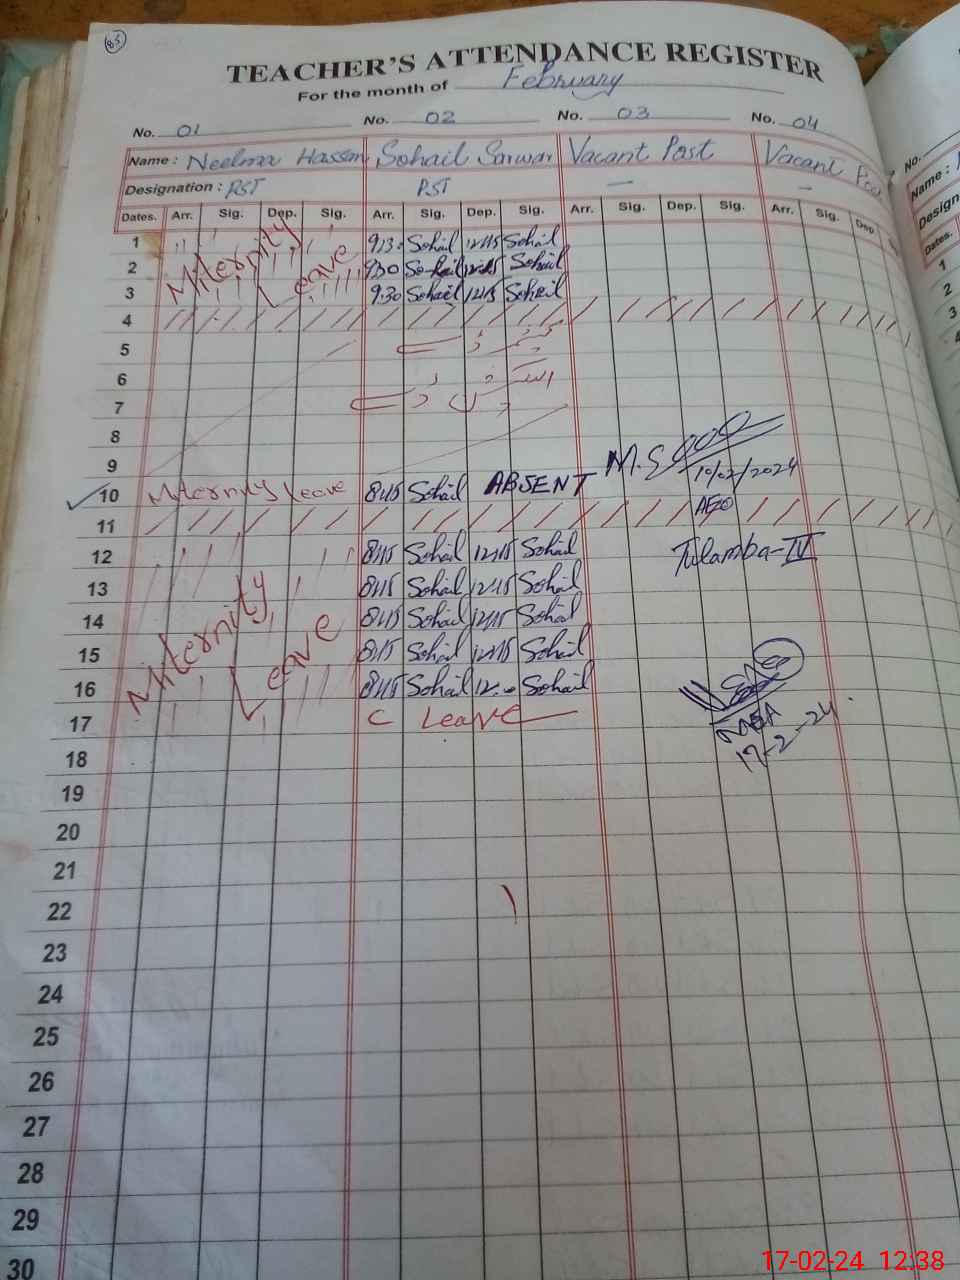 85
TEACHER'S ATTENDANCE REGISTER
For the month of February
No. 01 No. 02 No. 03 No. 04 No.
Name : Neelma Hassan Sohail Sarwar Vacant Post Vacant Pos Name :
Designation : PST PST — — Design
Dates. Arr. Sig. Dep. Sig. Arr. Sig. Dep. Sig. Arr. Sig. Dep. Sig. Arr. Sig. Dep. Dates.
1 Miternity Leave 9:30 Sohail 12:15 Sohail 1
2 9:30 Sohail 12:15 Sohail 2
3 9:30 Sohail 12:15 Sohail 3
4
5
6
7
8
9
10 Miternity Leave 8:15 Sohail ABSENT 10/02/2024
11 AEO
12 8:15 Sohail 12:15 Sohail Tulamba-IV
13 Miternity Leave 8:15 Sohail 12:15 Sohail
14 8:15 Sohail 12:15 Sohail
15 8:15 Sohail 12:15 Sohail
16 8:15 Sohail 12:00 Sohail
17 C Leave MEA
17-2-24
18
19
20
21
22
23
24
25
26
27
28
29
30
17-02-24 12:38